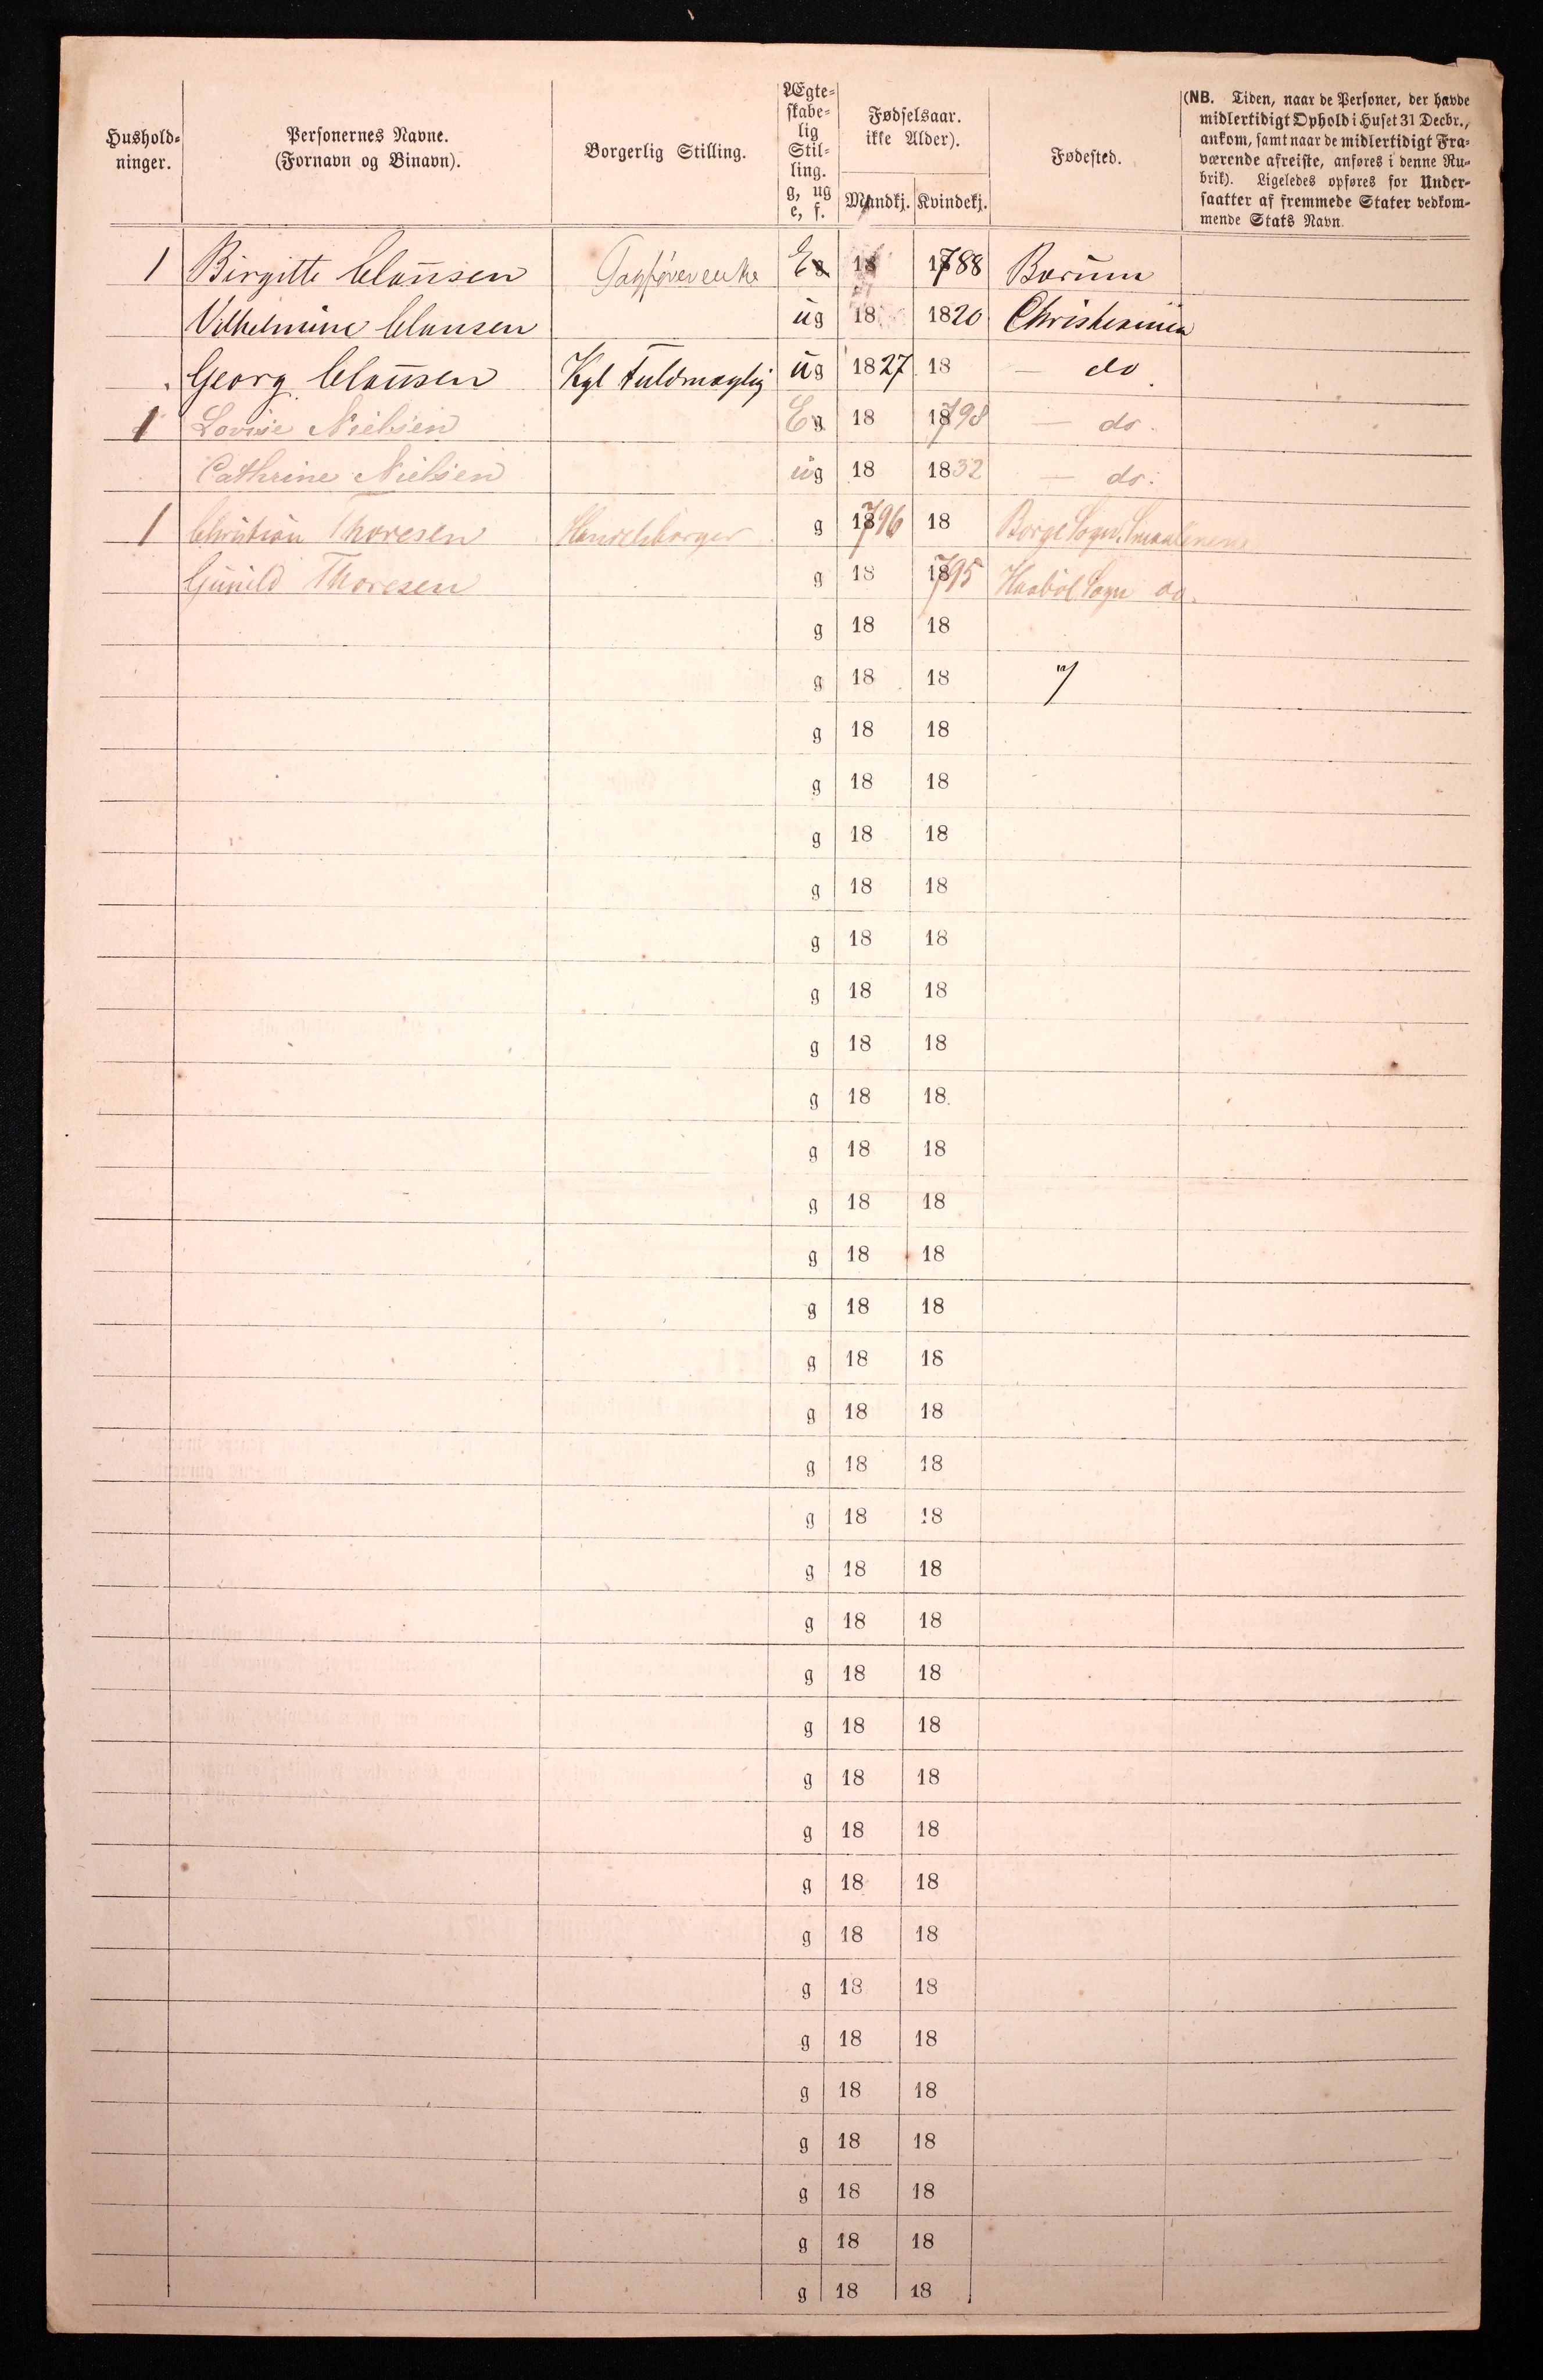 Hushold-
ninger.
Personernes Navne.
(Fornavn og Binavn).
Borgerlig Stilling.
Ægte-
skabe-
lig
Stil-
ling.
g, ug
e, f.
Fødselsaar.
ikke Alder).
Mandkj. Kvindekj.
Fødested.
(NB. Tiden, naar de Personer, der havde
midlertidigt Ophold i Huset 31 Decbr.,
ankom, samt naar de midlertidigt Fra-
værende afreiste, anføres i denne Ru-
brik). Ligeledes opføres for Under-
saatter af fremmede Stater vedkom-
mende Stats Navn.
1 Birgitte Claüsen E 18 1788 Bærüm
Vilhelmine Clausen üg 18 1820 Christiania
Georg Claüsen Kgl Fuldmægtig üg 1827 18 — do
1 Lovise Nielsen E 18 1798 — do.
Cathrine Nielsen üg 18 1832 — do.
1 Christian Thoresen Handelsborger g 1796 18 Borge Sogn, Smaalenene
Günild Thoresen g 18 1795 Haabøl Sogn do.
g 18 18
g 18 18
g 18 18
g 18 18
g 18 18
g 18 18
g 18 18
g 18 18
g 18 18
g 18 18
g 18 18
g 18 18
g 18 18
g 18 18
g 18 18
g 18 18
g 18 18
g 18 18
g 18 18
g 18 18
g 18 18
g 18 18
g 18 18
g 18 18
g 18 18
g 18 18
g 18 18
g 18 18
g 18 18
g 18 18
g 18 18
g 18 18
g 18 18